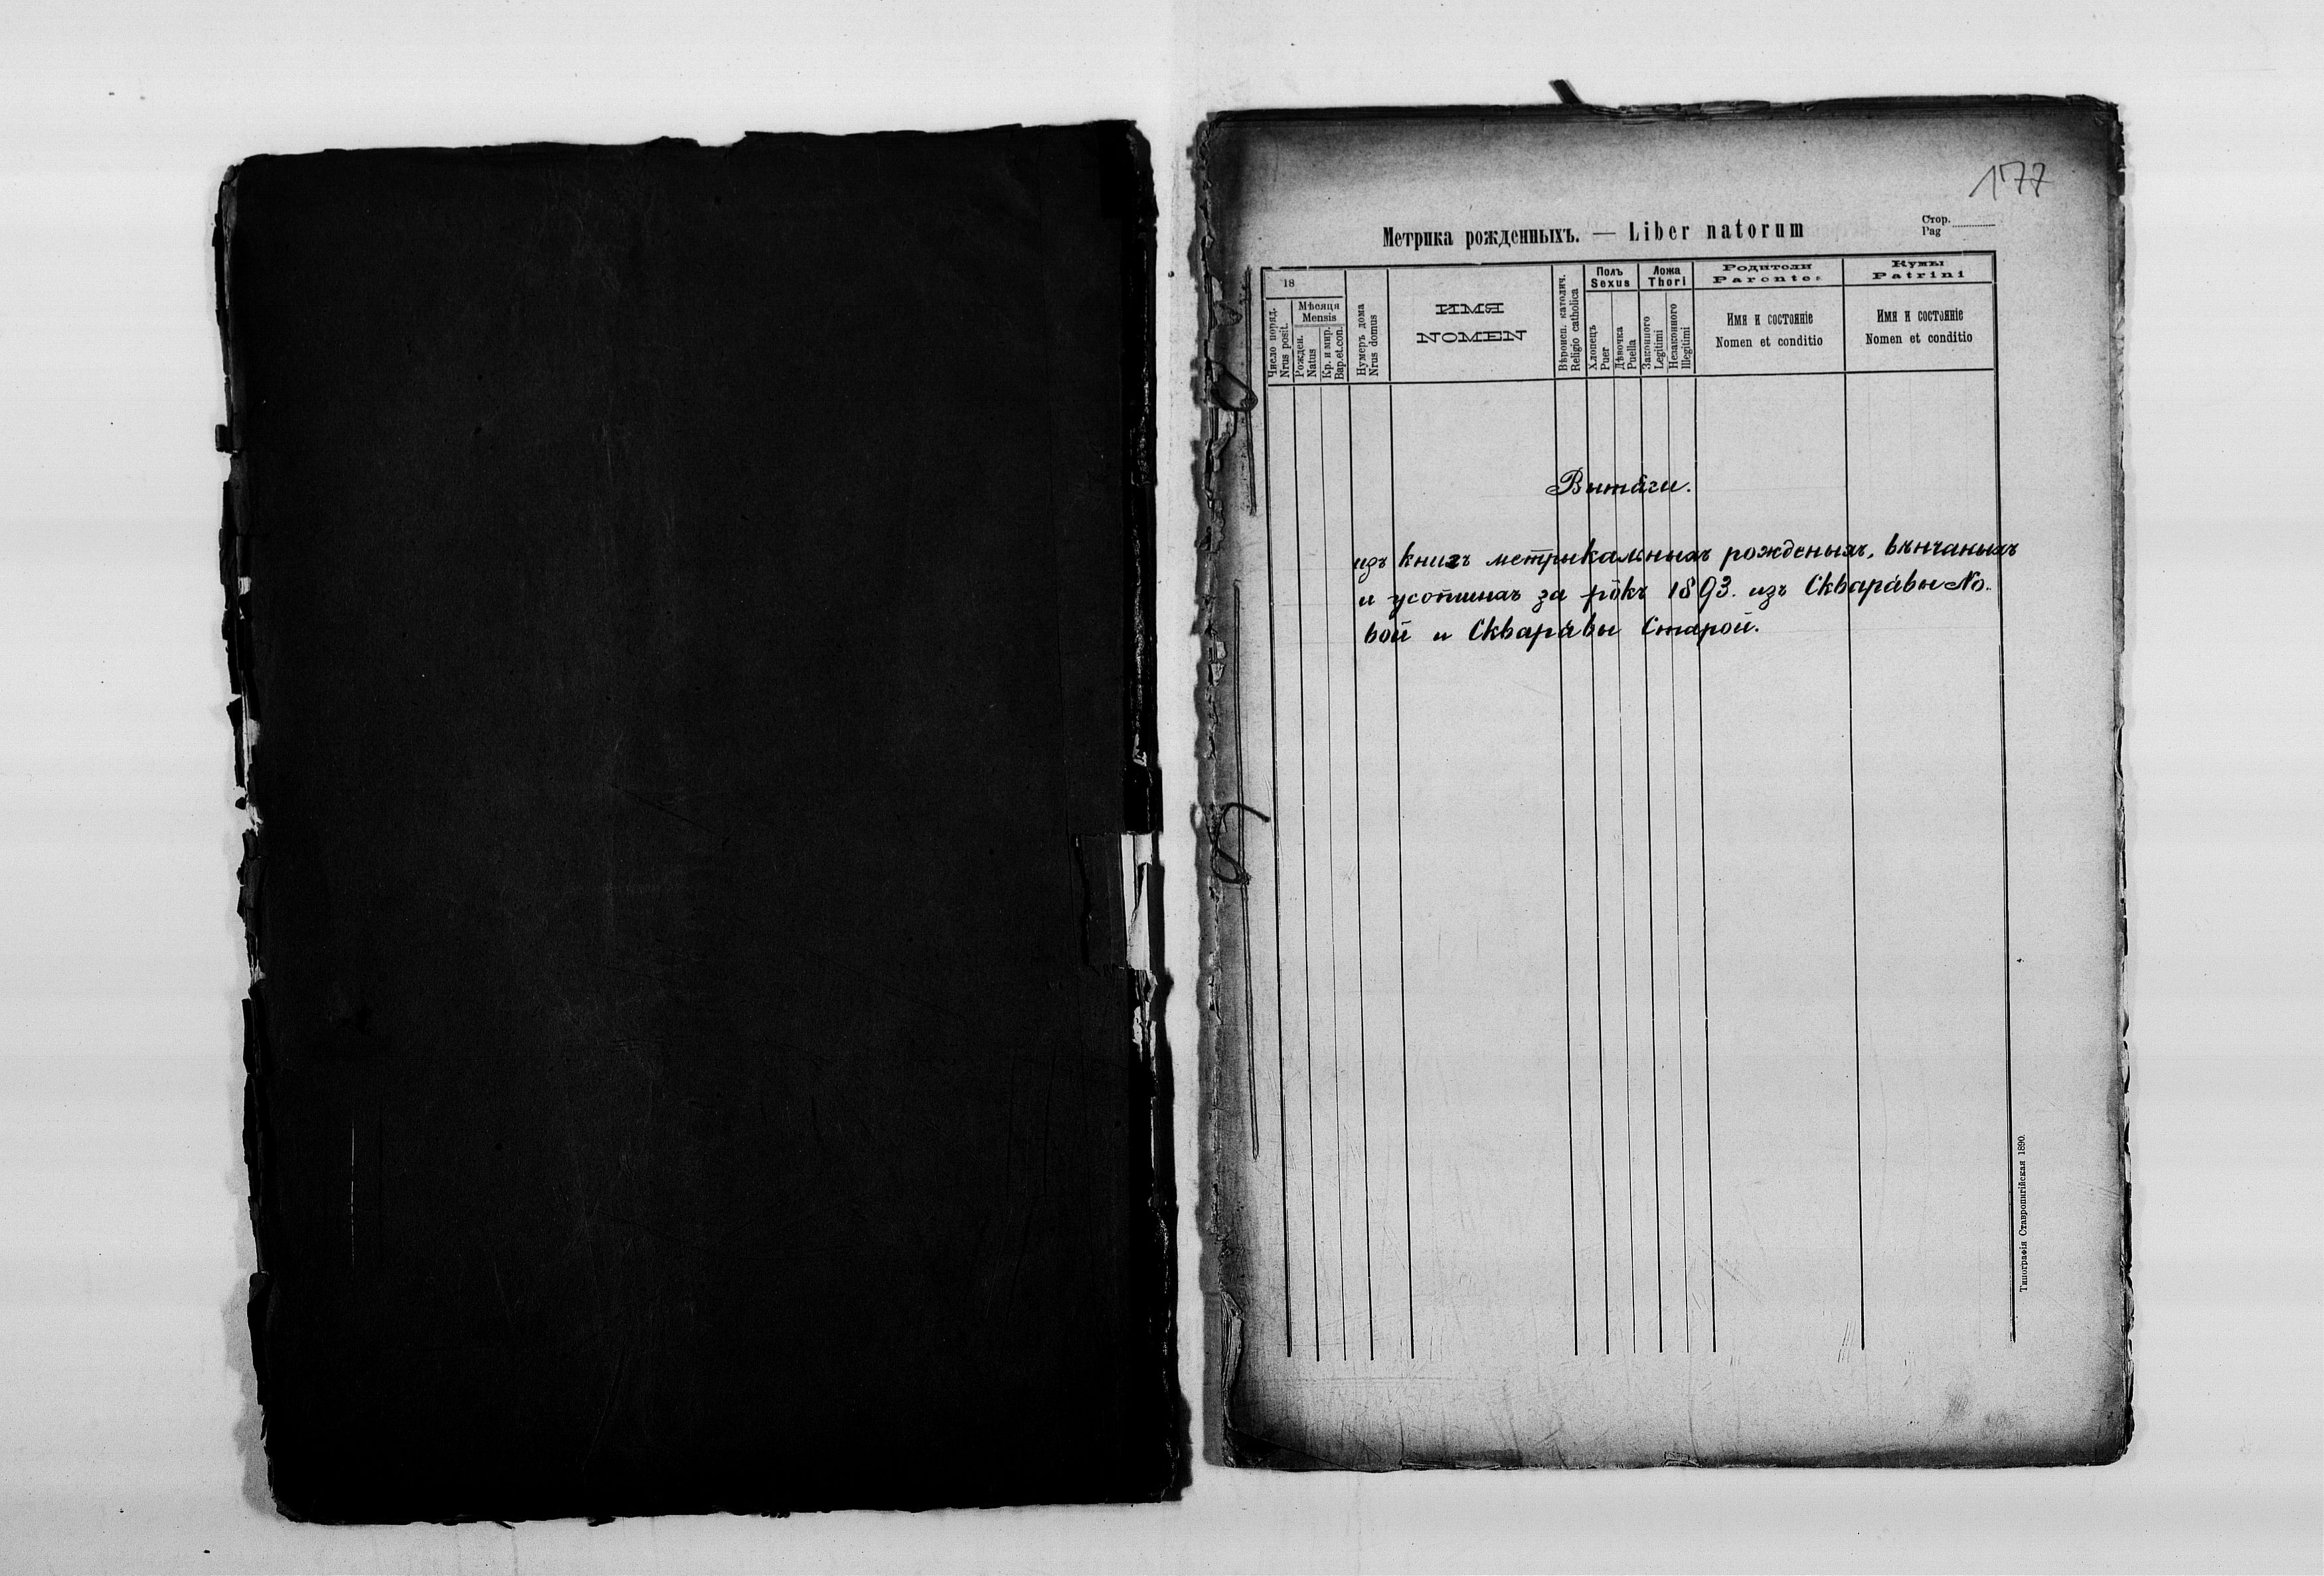 177
Метрика рожденныхъ. — Liber natorum
Стор.
Pag
18
Число поряд.
Nrus posit.
Мѣсяця
Mensis
Рожден.
Natus
Кр. и мир.
Bap.et.con.
Нумеръ дома
Nrus domus
ИМЯ
NOMEN
Вѣроисп. католич.
Religio catholica
Полъ
Sexus
Хлопецъ
Puer
Дѣвочка
Puella
Ложа
Thori
Законного
Legitimi
Незаконного
Illegitimi
Родители
Parentes
Имя и состояніе
Nomen et conditio
Кумы
Patrini
Имя и состояніе
Nomen et conditio
Витяги.
изъ книгъ метрыкальныхъ рожденыхъ, вѣнчаныхъ
и усопшихъ за рôкъ 1893. изъ Скварявы Но-
вои и Скварявы Старои.
Типографія Ставропигійская 1890.